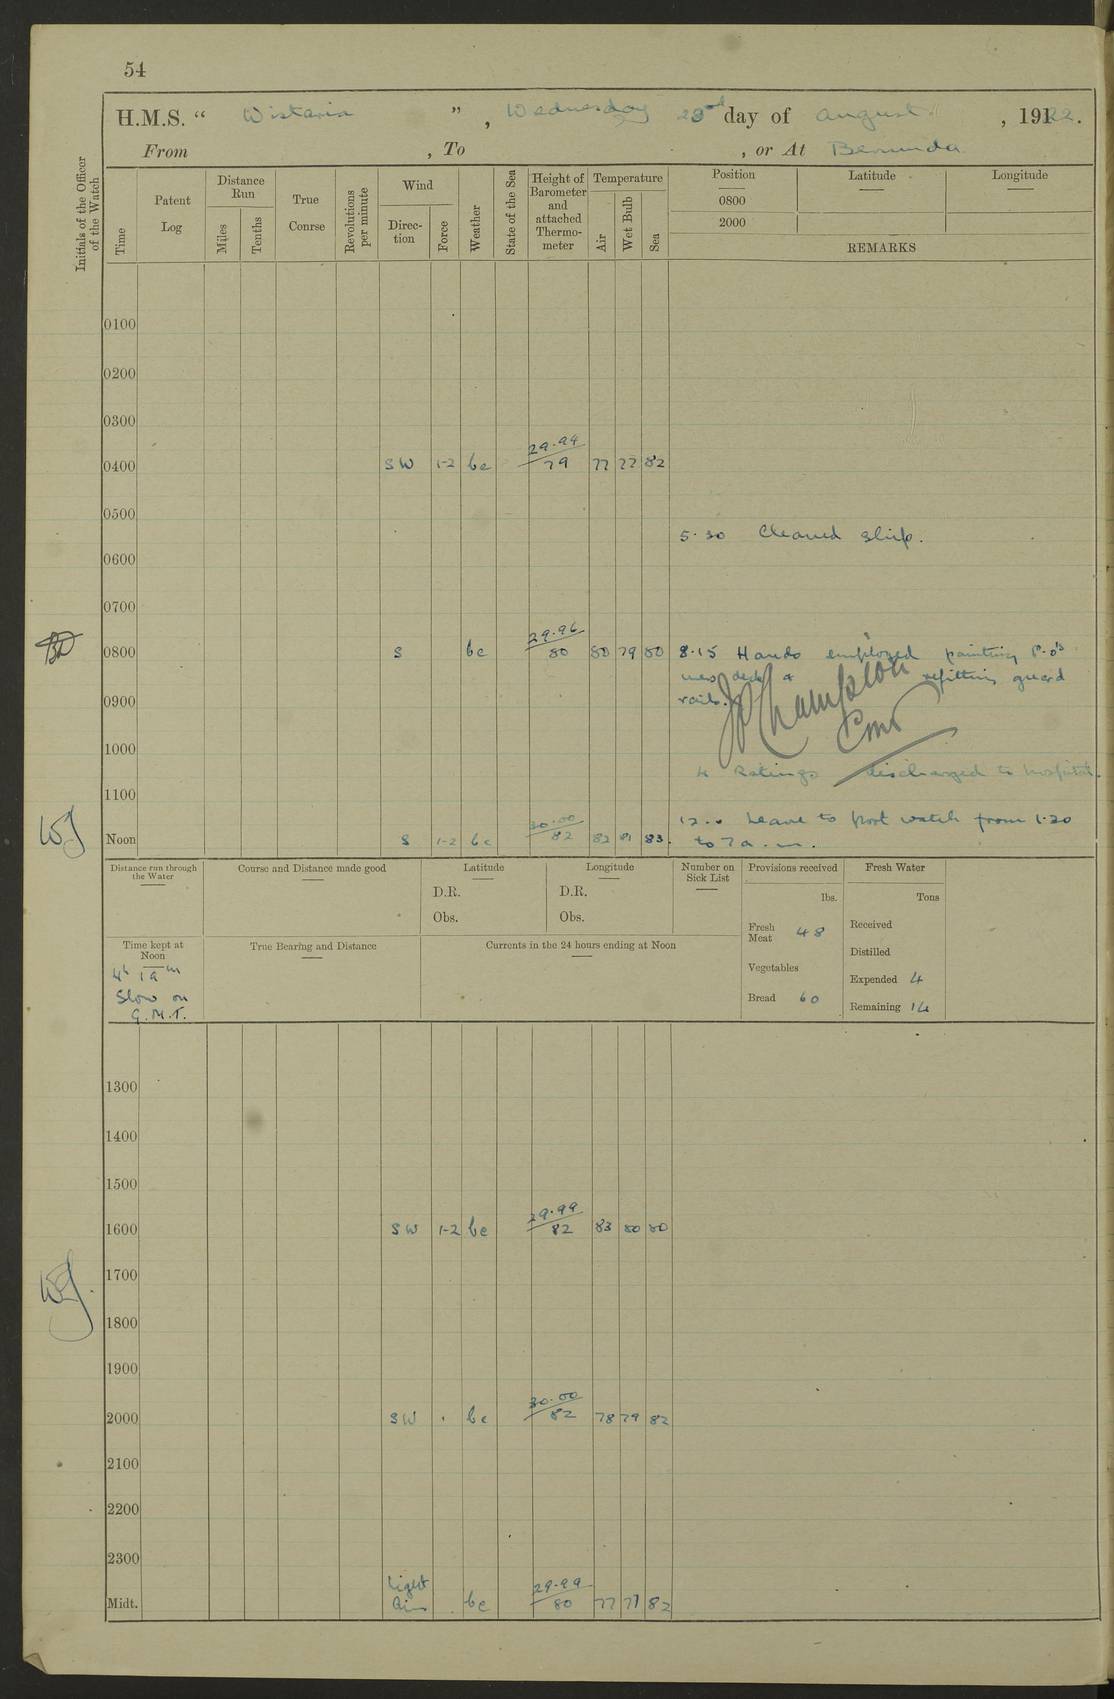 54
H.M.S. “ Wistaria ”, Wednesday 23rd day of August, 1922.
From , To , or At Bermuda
Initials of the Officer of the Watch
Time
Patent Log
Distance Run
Miles
Tenths
True Course
Revolutions per minute
Wind
Direction
Force
Weather
State of the Sea
Height of Barometer and attached Thermometer
Temperature
Air
Wet Bulb
Sea
Position Latitude Longitude
0800
2000
REMARKS
0100
0200
0300
0400 SW 1-2 bc 29.94/79 77 77 82
0500
5.30 Cleaned ship.
0600
0700
0800 S bc 29.96/80 80 79 80 8.15 Hands employed painting P.O's
mess deck & refitting guard
0900 rails.
JP Champion
Cmdr
1000
4 Ratings discharged to hospital.
1100
12.0 Leave to port watch from 1.20
Noon S 1-2 bc 30.00/82 82 81 83. to 7 a.m.
WJ
Distance run through the Water
Course and Distance made good
Latitude
D.R.
Obs.
Longitude
D.R.
Obs.
Number on Sick List
Provisions received
lbs.
Fresh Meat 48
Vegetables
Bread 60
Fresh Water
Tons
Received
Distilled
Expended 4
Remaining 14
Time kept at Noon
4h 19m
Slow on
G.M.T.
True Bearing and Distance
Currents in the 24 hours ending at Noon
1300
1400
1500
1600 SW 1-2 bc 29.99/82 83 80 80
1700
WJ.
1800
1900
2000 SW bc 30.00/82 78 79 82
2100
2200
2300
Midt. Light Air bc 29.99/80 77 77 82